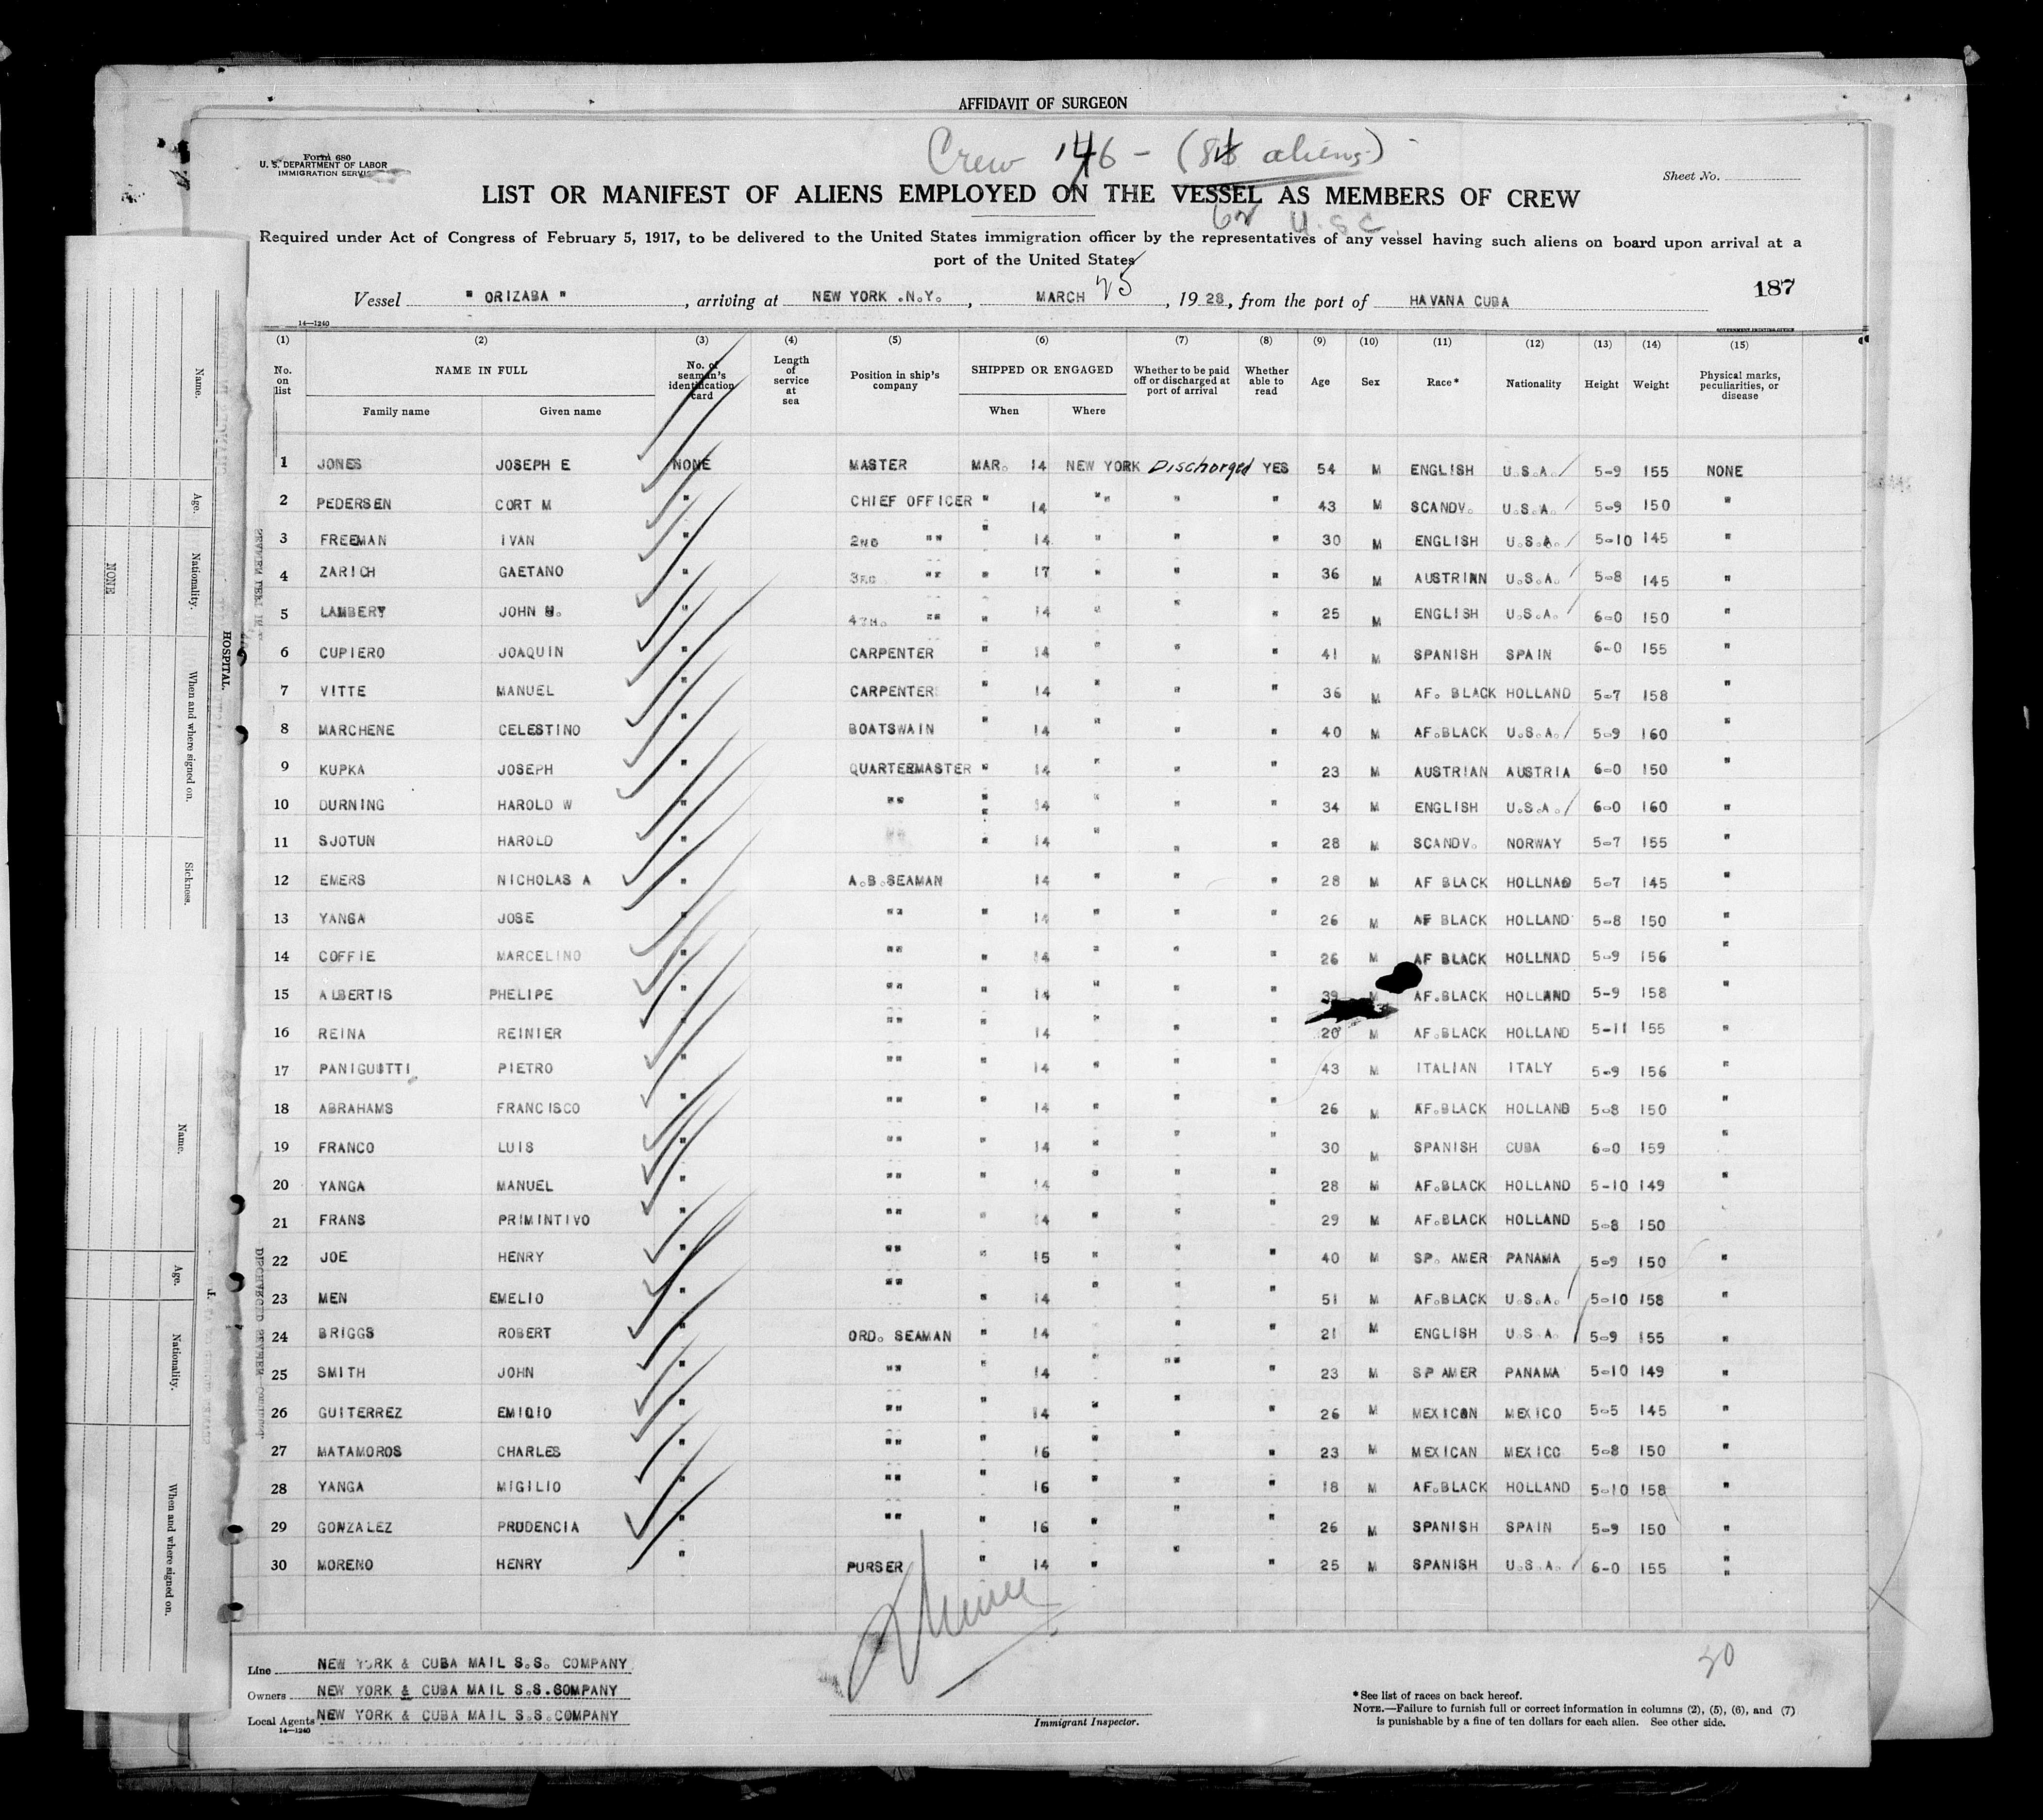 AFFIDAVIT OF SURGEON
Crew 146 - (84 aliens)
Form 680
U. S. DEPARTMENT OF LABOR
IMMIGRATION SERVICE
Sheet No.
LIST OR MANIFEST OF ALIENS EMPLOYED ON THE VESSEL AS MEMBERS OF CREW
62 U.S.C.
Required under Act of Congress of February 5, 1917, to be delivered to the United States immigration officer by the representatives of any vessel having such aliens on board upon arrival at a
port of the United States
Vessel " ORIZABA ", arriving at NEW YORK .N.Y., MARCH 25, 1928, from the port of HAVANA CUBA
187
14—1240
GOVERNMENT PRINTING OFFICE
(1) (2) (3) (4) (5) (6) (7) (8) (9) (10) (11) (12) (13) (14) (15)
No. on list NAME IN FULL Family name Given name No. of seaman's identification card Length of service at sea Position in ship's company SHIPPED OR ENGAGED When Where Whether to be paid off or discharged at port of arrival Whether able to read Age Sex Race* Nationality Height Weight Physical marks, peculiarities, or disease
1 JONES JOSEPH E NONE MASTER MAR. 14 NEW YORK Discharged YES 54 M ENGLISH U.S.A. 5-9 155 NONE
2 PEDERSEN CORT M " CHIEF OFFICER " 14 "" " " 43 M SCANDV. U.S.A. 5-9 150 "
3 FREEMAN IVAN " 2ND "" " 14 " " " 30 M ENGLISH U.S.A. 5-10 145 "
4 ZARICH GAETANO " 3RD "" " 17 " " " 36 M AUSTRIAN U.S.A. 5-8 145 "
5 LAMBERT JOHN " 4TH. "" " 14 " " " 25 M ENGLISH U.S.A. 6-0 150 "
6 CUPIERO JOAQUIN " CARPENTER " 14 " " " 41 M SPANISH SPAIN 6-0 155 "
7 VITTE MANUEL " CARPENTER " 14 " " " 36 M AF. BLACK HOLLAND 5-7 158 "
8 MARCHENE CELESTINO " BOATSWAIN " 14 " " " 40 M AF.BLACK U.S.A. 5-9 160 "
9 KUPKA JOSEPH " QUARTERMASTER " 14 " " " 23 M AUSTRIAN AUSTRIA 6-0 150 "
10 DURNING HAROLD W " "" " 14 " " " 34 M ENGLISH U.S.A. 6-0 160 "
11 SJOTUN HAROLD " "" " 14 " " " 28 M SCANDV. NORWAY 5-7 155 "
12 EMERS NICHOLAS A " A.B.SEAMAN 14 " " " 28 M AF BLACK HOLLNAD 5-7 145 "
13 YANGA JOSE " "" " 14 " " " 26 M AF BLACK HOLLAND 5-8 150 "
14 COFFIE MARCELINO " "" " 14 " " " 26 M AF BLACK HOLLNAD 5-9 156 "
15 ALBERTIS PHELIPE " "" " 14 " " " 39 M AF.BLACK HOLLAND 5-9 158 "
16 REINA REINIER " "" " 14 " " " 20 M AF.BLACK HOLLAND 5-11 155 "
17 PANIGUTTI PIETRO " "" " 14 " " " 43 M ITALIAN ITALY 5-9 156 "
18 ABRAHAMS FRANCISCO " "" " 14 " " " 26 M AF.BLACK HOLLAND 5-8 150 "
19 FRANCO LUIS " "" " 14 " " " 30 M SPANISH CUBA 6-0 159 "
20 YANGA MANUEL " "" " 14 " " " 28 M AF.BLACK HOLLAND 5-10 149 "
21 FRANS PRIMINTIVO "" " 14 " " " 29 M AF.BLACK HOLLAND 5-8 150
22 JOE HENRY " "" " 15 " " " 40 M SP. AMER PANAMA 5-9 150 "
23 MEN EMELIO " "" " 14 " " " 51 M AF.BLACK U.S.A. 5-10 158 "
24 BRIGGS ROBERT " ORD. SEAMAN " 14 " " " 21 M ENGLISH U.S.A. 5-9 155 "
25 SMITH JOHN " "" " 14 " "" " 23 M SP AMER PANAMA 5-10 149 "
26 GUITERREZ EMILIO " "" " 14 " " " 26 M MEXICAN MEXICO 5-5 145 "
27 MATAMOROS CHARLES " "" " 16 " " " 23 M MEXICAN MEXICO 5-8 150 "
28 YANGA MIGILIO " "" " 16 " " " 18 M AF.BLACK HOLLAND 5-10 158 "
29 GONZALEZ PRUDENCIA " "" " 16 " " " 26 M SPANISH SPAIN 5-9 150 "
30 MORENO HENRY " PURSER " 14 " " " 25 M SPANISH U.S.A. 6-0 155 "
Line NEW YORK & CUBA MAIL S.S. COMPANY
Owners NEW YORK & CUBA MAIL S.S.COMPANY
Local Agents NEW YORK & CUBA MAIL S.S.COMPANY
14—1240
Immigrant Inspector.
30
*See list of races on back hereof.
NOTE.—Failure to furnish full or correct information in columns (2), (5), (6), and (7)
is punishable by a fine of ten dollars for each alien. See other side.
Name.
Age.
Nationality.
When and where signed on.
Sickness.
NONE
HOSPITAL.
Name.
Age.
Nationality.
When and where signed on.